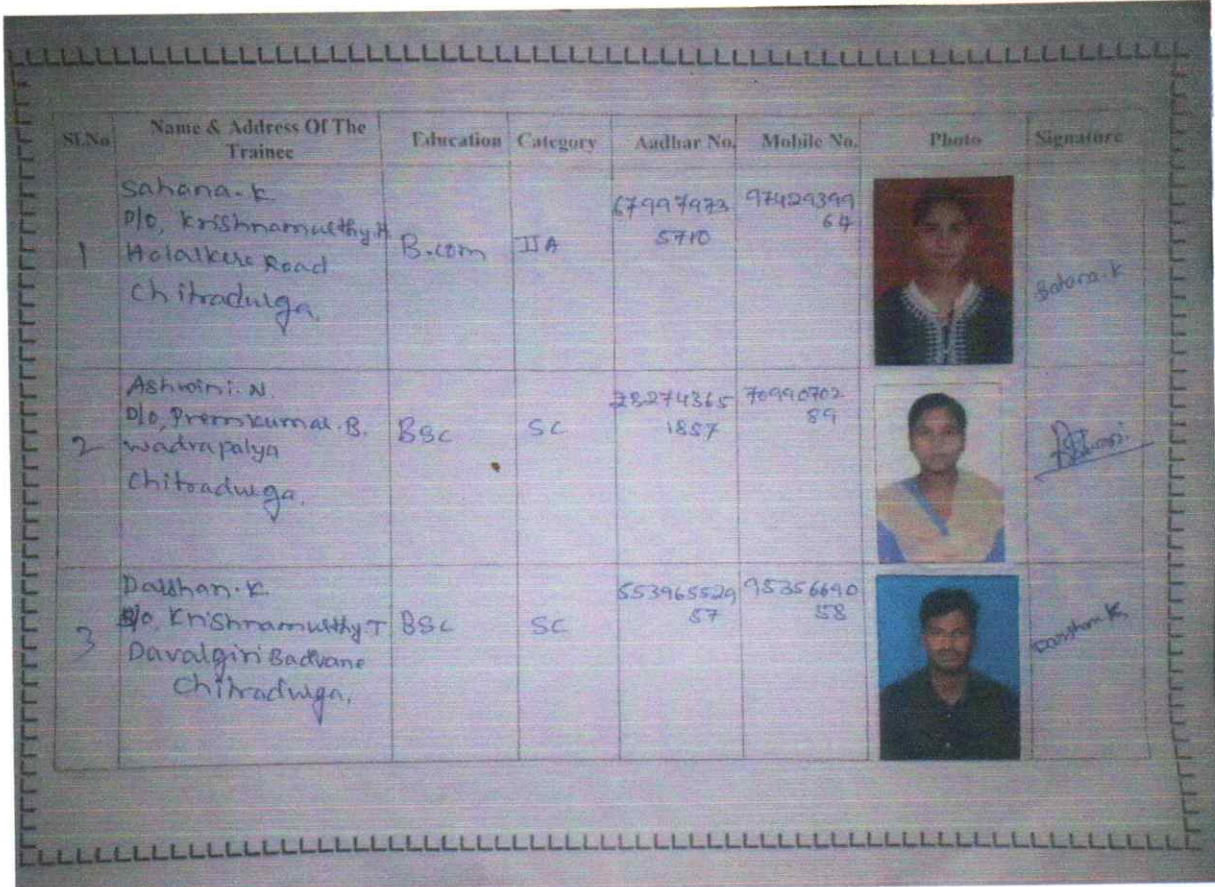 Sl.No Name & Address Of The Trainee Education Category Aadhar No. Mobile No. Photo Signature
Sahana. K
D/o, Krishnamurthy.H
Holalkere Road
Chitradurga.
1
B.com
IIA
67997973
5710
97429399
64
Sahana. K
Ashwini. N
D/o, Premkumar. B.
wadrapalya
Chitradurga.
2
BSC
SC
28274365
1857
70990702
89
Ashwini
Darshan. K
S/o, Krishnamurthy T
Davalgiri Badvane
Chitradurga.
3
BSC
SC
553965529
57
95356690
58
Darshan K